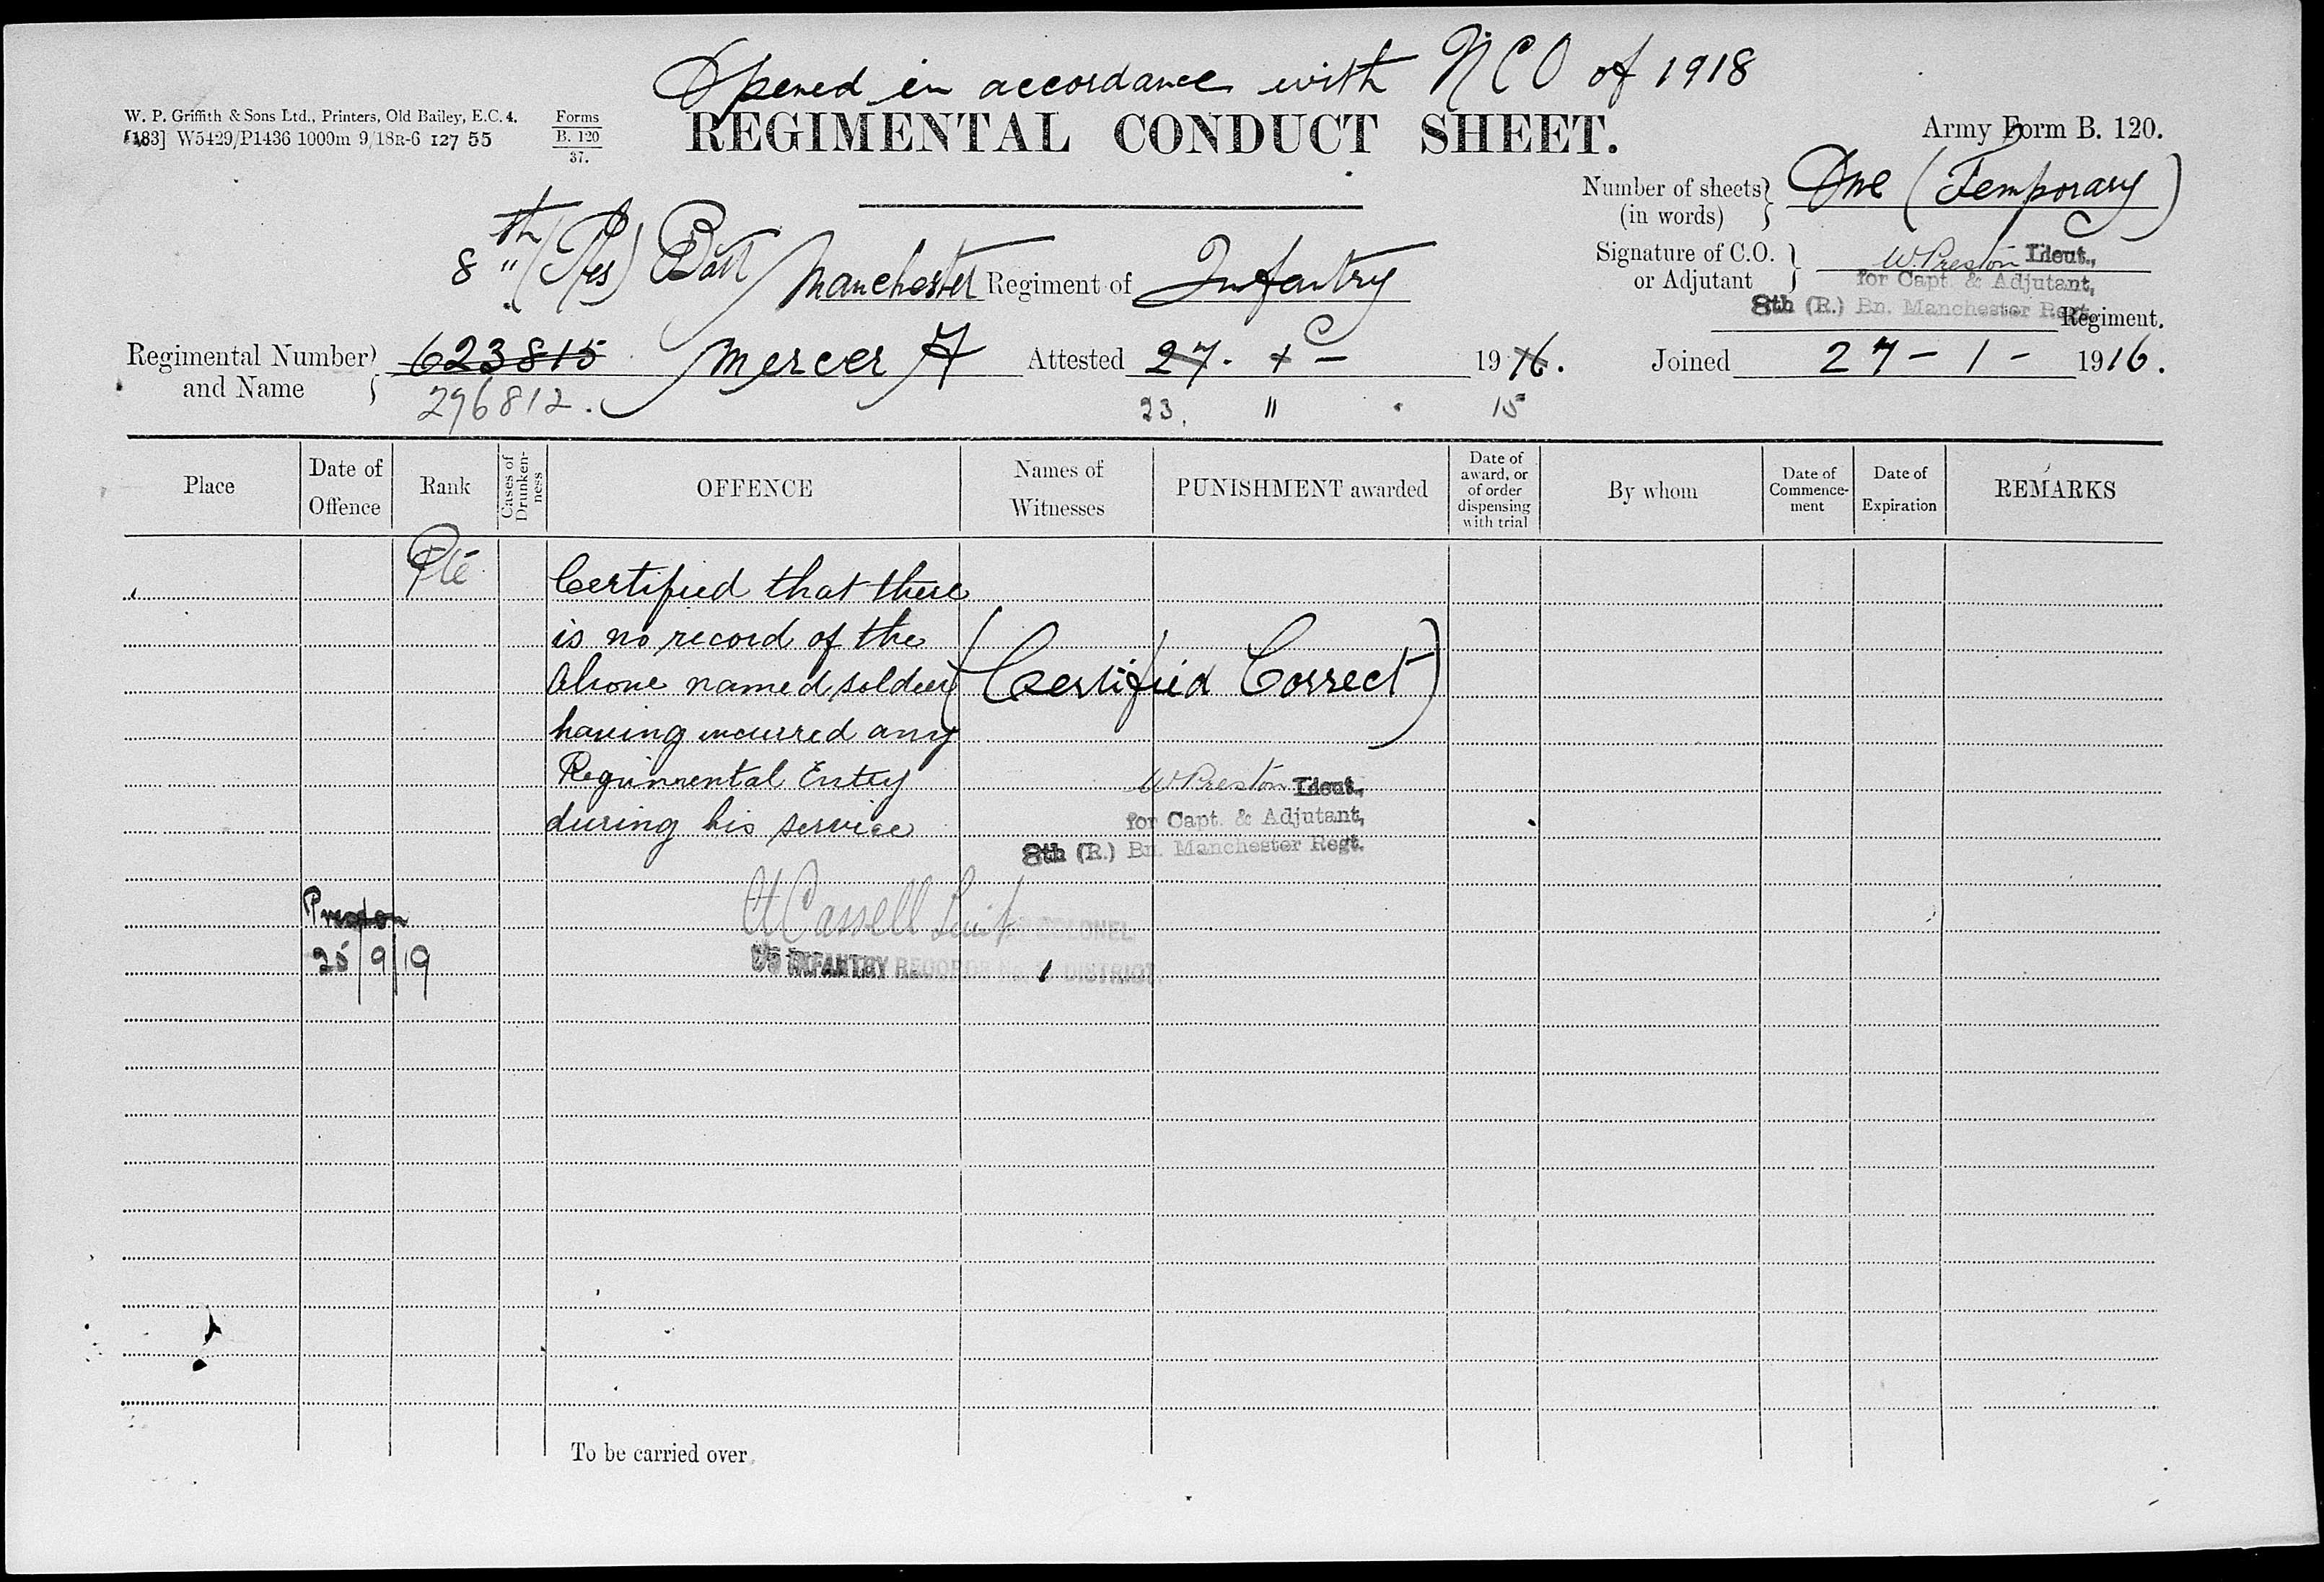 Opened in accordance with NCO of 1918
W. P. Griffith & Sons Ltd., Printers, Old Bailey, E.C. 4.
[183] W5429/P1436 1000m 9/18R-6 127 55
Forms
B. 120
37.
REGIMENTAL CONDUCT SHEET.
Army Form B. 120.
Number of sheets (in words) One (Temporary)
8th (Res) Batt Manchester Regiment of Infantry
Signature of C.O. or Adjutant W. Preston Lieut.,
for Capt. & Adjutant,
8th (R.) Bn. Manchester Regt. Regiment.
Regimental Number and Name 623815 Mercer A Attested 27. 1 - 1916. Joined 27 - 1 - 1916.
296812. 23. " 15
Place
Date of Offence
Rank
Cases of Drunkenness
OFFENCE
Names of Witnesses
PUNISHMENT awarded
Date of award, or of order dispensing with trial
By whom
Date of Commence-ment
Date of Expiration
REMARKS
Pte
Certified that there
is no record of the
above named soldier (Certified Correct)
having incurred any
Regimental Entry
during his service
W Preston Lieut.,
for Capt. & Adjutant,
8th (R.) Bn. Manchester Regt.
Preston
25/9/19
Cassell Lieut COLONEL
INFANTRY RECORDS DISTRICT.
To be carried over